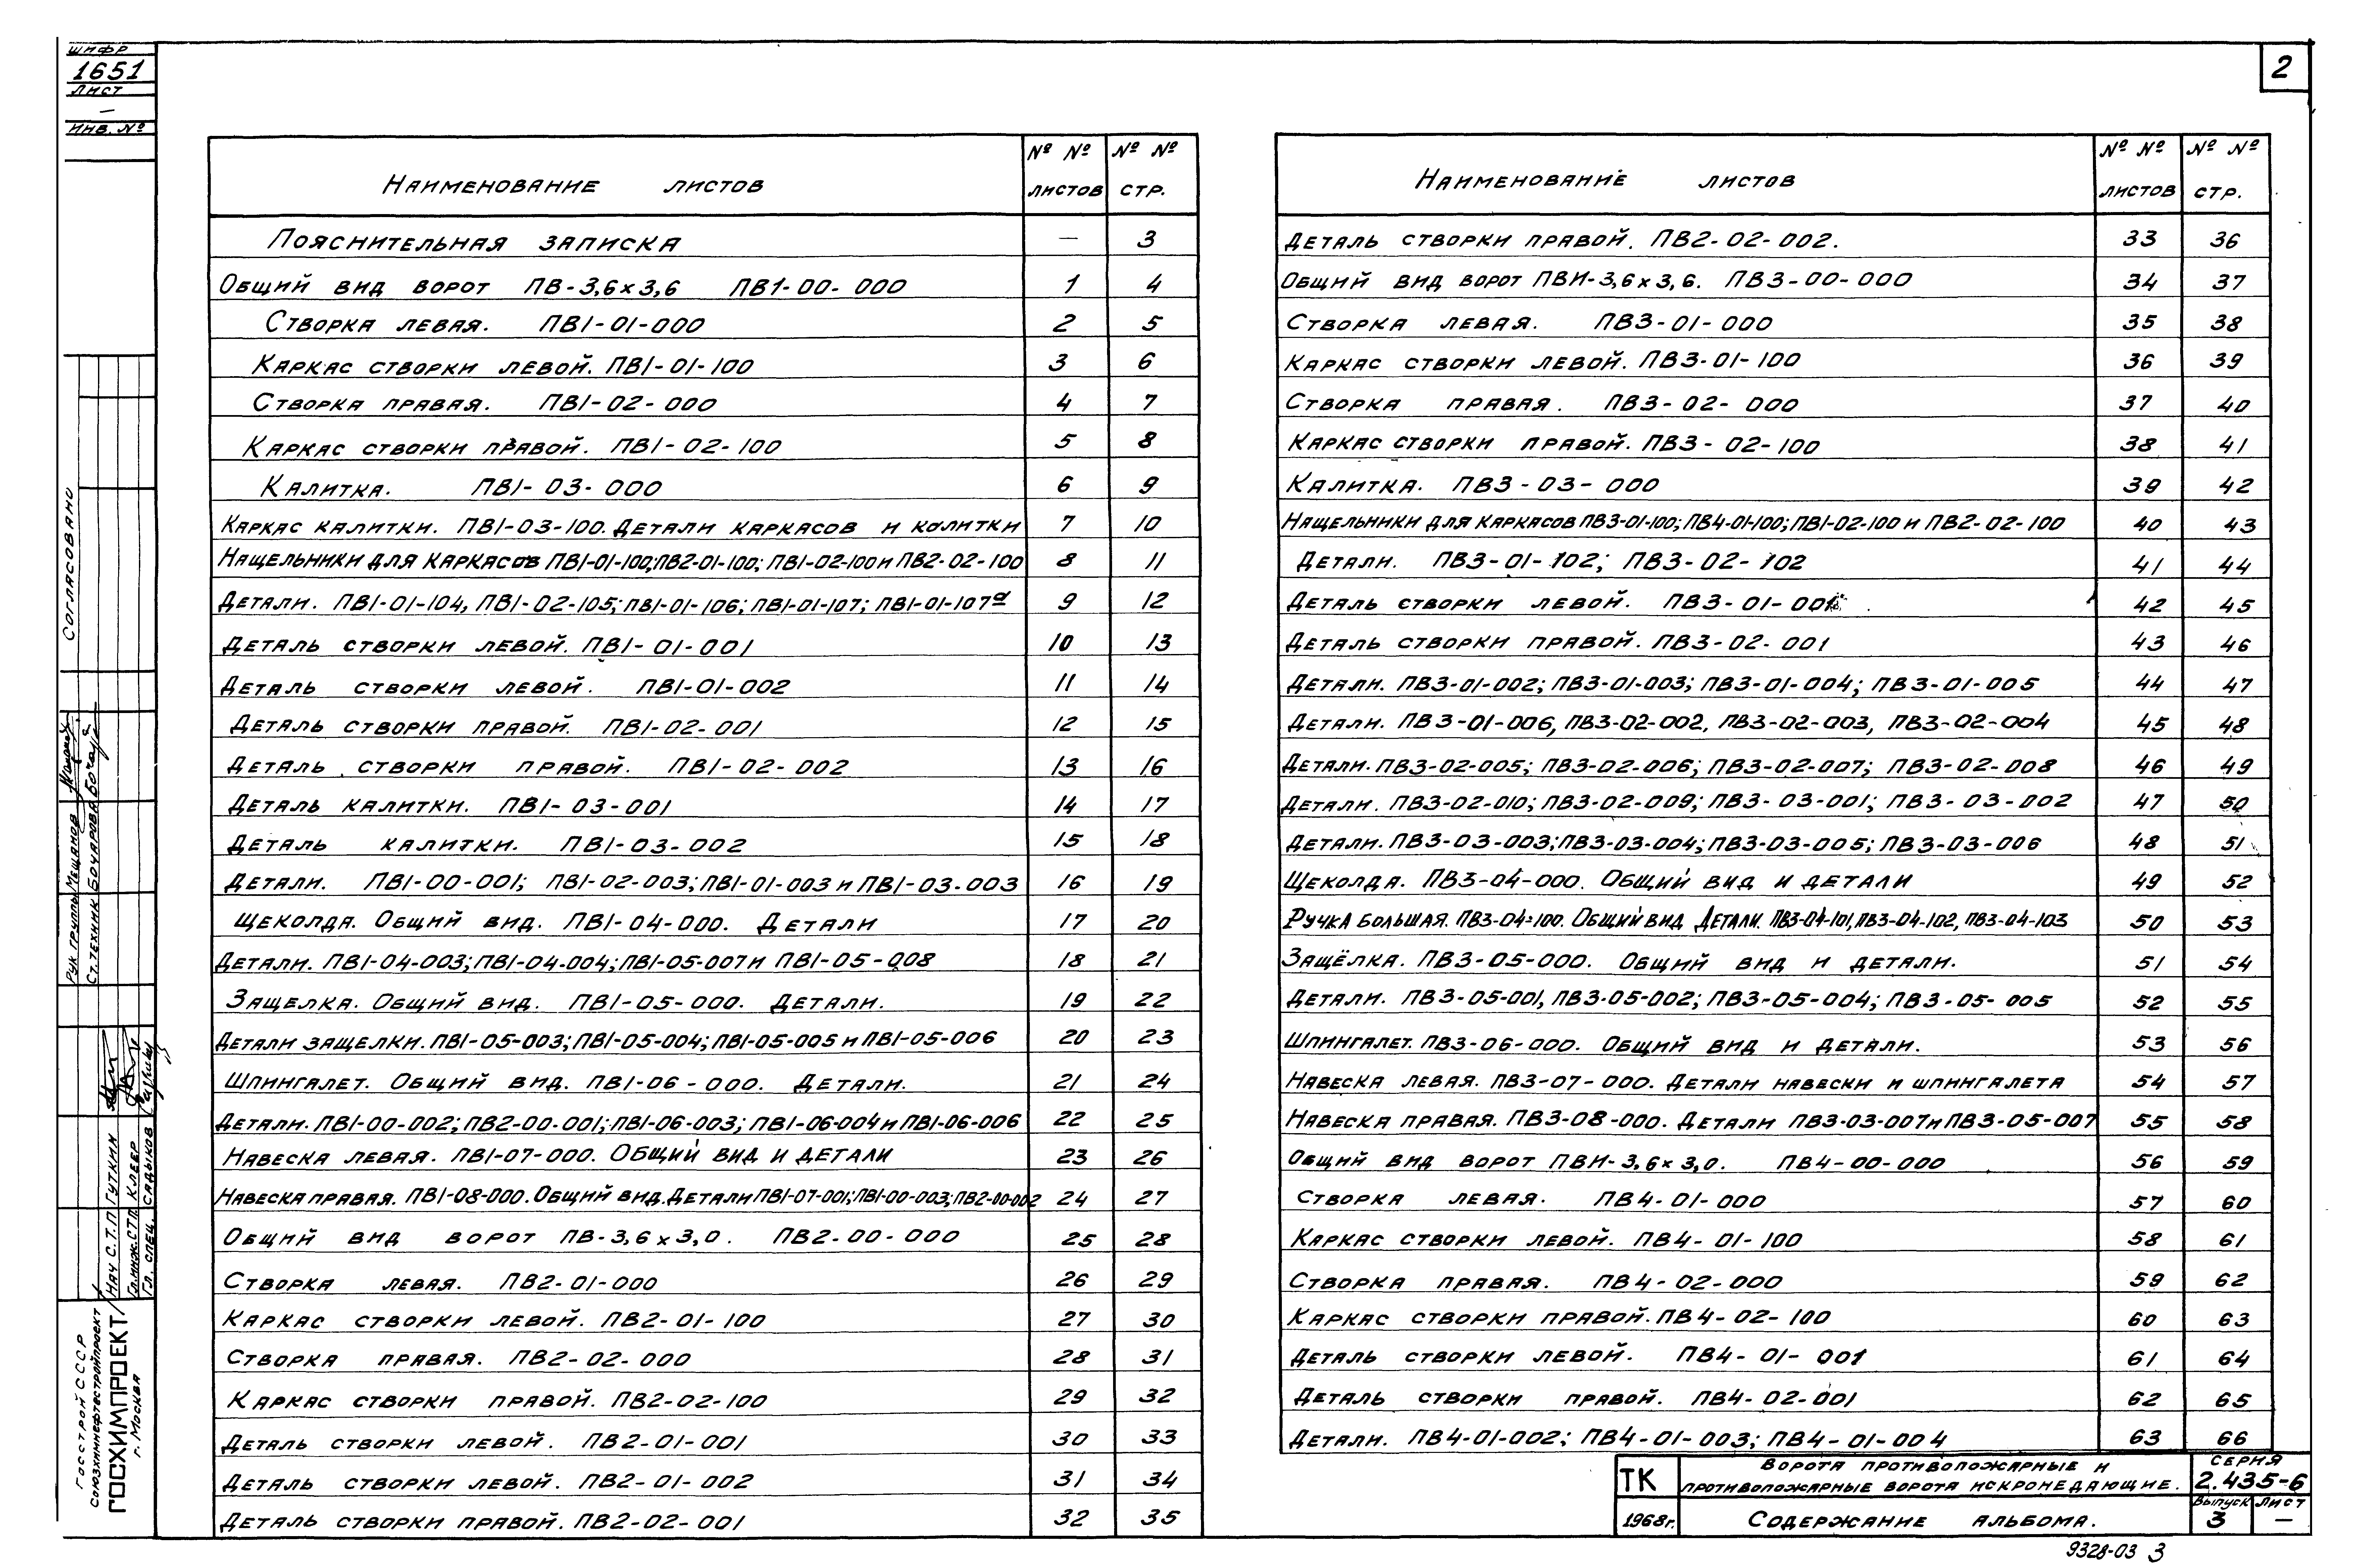 шифр
1651
лист
—
инв. №
2
Наименование листов №№ листов №№ стр.
Пояснительная записка — 3
Общий вид ворот ПВ-3,6×3,6 ПВ1-00-000 1 4
Створка левая. ПВ1-01-000 2 5
Каркас створки левой. ПВ1-01-100 3 6
Створка правая. ПВ1-02-000 4 7
Каркас створки правой. ПВ1-02-100 5 8
Калитка. ПВ1-03-000 6 9
Каркас калитки. ПВ1-03-100. Детали каркасов и калитки 7 10
Нащельники для каркасов ПВ1-01-100; ПВ2-01-100; ПВ1-02-100 и ПВ2-02-100 8 11
Детали. ПВ1-01-104, ПВ1-02-105; ПВ1-01-106; ПВ1-01-107; ПВ1-01-107а 9 12
Деталь створки левой. ПВ1-01-001 10 13
Деталь створки левой. ПВ1-01-002 11 14
Деталь створки правой. ПВ1-02-001 12 15
Деталь створки правой. ПВ1-02-002 13 16
Деталь калитки. ПВ1-03-001 14 17
Деталь калитки. ПВ1-03-002 15 18
Детали. ПВ1-00-001; ПВ1-02-003; ПВ1-01-003 и ПВ1-03-003 16 19
Щеколда. Общий вид. ПВ1-04-000. Детали 17 20
Детали. ПВ1-04-003; ПВ1-04-004; ПВ1-05-007 и ПВ1-05-008 18 21
Защелка. Общий вид. ПВ1-05-000. Детали. 19 22
Детали защелки. ПВ1-05-003; ПВ1-05-004; ПВ1-05-005 и ПВ1-05-006 20 23
Шпингалет. Общий вид. ПВ1-06-000. Детали. 21 24
Детали. ПВ1-00-002; ПВ2-00-001; ПВ1-06-003; ПВ1-06-004 и ПВ1-06-006 22 25
Навеска левая. ПВ1-07-000. Общий вид и детали 23 26
Навеска правая. ПВ1-08-000. Общий вид. Детали ПВ1-07-001; ПВ1-00-003; ПВ2-00-002 24 27
Общий вид ворот ПВ-3,6×3,0. ПВ2-00-000 25 28
Створка левая. ПВ2-01-000 26 29
Каркас створки левой. ПВ2-01-100 27 30
Створка правая. ПВ2-02-000 28 31
Каркас створки правой. ПВ2-02-100 29 32
Деталь створки левой. ПВ2-01-001 30 33
Деталь створки левой. ПВ2-01-002 31 34
Деталь створки правой. ПВ2-02-001 32 35
Наименование листов №№ листов №№ стр.
Деталь створки правой. ПВ2-02-002. 33 36
Общий вид ворот ПВИ-3,6×3,6. ПВ3-00-000 34 37
Створка левая. ПВ3-01-000 35 38
Каркас створки левой. ПВ3-01-100 36 39
Створка правая. ПВ3-02-000 37 40
Каркас створки правой. ПВ3-02-100 38 41
Калитка. ПВ3-03-000 39 42
Нащельники для каркасов ПВ3-01-100; ПВ4-01-100; ПВ1-02-100 и ПВ2-02-100 40 43
Детали. ПВ3-01-102; ПВ3-02-102 41 44
Деталь створки левой. ПВ3-01-001 42 45
Деталь створки правой. ПВ3-02-001 43 46
Детали. ПВ3-01-002; ПВ3-01-003; ПВ3-01-004; ПВ3-01-005 44 47
Детали. ПВ3-01-006, ПВ3-02-002, ПВ3-02-003, ПВ3-02-004 45 48
Детали. ПВ3-02-005; ПВ3-02-006; ПВ3-02-007; ПВ3-02-008 46 49
Детали. ПВ3-02-010; ПВ3-02-009; ПВ3-03-001; ПВ3-03-002 47 50
Детали. ПВ3-03-003; ПВ3-03-004; ПВ3-03-005; ПВ3-03-006 48 51
Щеколда. ПВ3-04-000. Общий вид и детали 49 52
Ручка большая. ПВ3-04-100. Общий вид Детали. ПВ3-04-101, ПВ3-04-102, ПВ3-04-103 50 53
Защёлка. ПВ3-05-000. Общий вид и детали. 51 54
Детали. ПВ3-05-001, ПВ3-05-002; ПВ3-05-004; ПВ3-05-005 52 55
Шпингалет. ПВ3-06-000. Общий вид и детали. 53 56
Навеска левая. ПВ3-07-000. Детали навески и шпингалета 54 57
Навеска правая. ПВ3-08-000. Детали ПВ3-03-007 и ПВ3-05-007 55 58
Общий вид ворот ПВИ-3,6×3,0. ПВ4-00-000 56 59
Створка левая. ПВ4-01-000 57 60
Каркас створки левой. ПВ4-01-100 58 61
Створка правая. ПВ4-02-000 59 62
Каркас створки правой. ПВ4-02-100 60 63
Деталь створки левой. ПВ4-01-001 61 64
Деталь створки правой. ПВ4-02-001 62 65
Детали. ПВ4-01-002; ПВ4-01-003; ПВ4-01-004 63 66
ТК
Ворота противопожарные и
противопожарные ворота искронедающие.
серия
2.435-6
1968г.
Содержание альбома.
Выпуск
3
Лист
—
9328-03 3
Согласовано
Рук группы Мещанов
Ст. техник Бочарова
Нач С.Т.П. Гуткин
Гл.инж.СТП. Клеер
Гл. спец. Садыков
Госстрой СССР
Союзхимнефтестройпроект
ГОСХИМПРОЕКТ
г. Москва